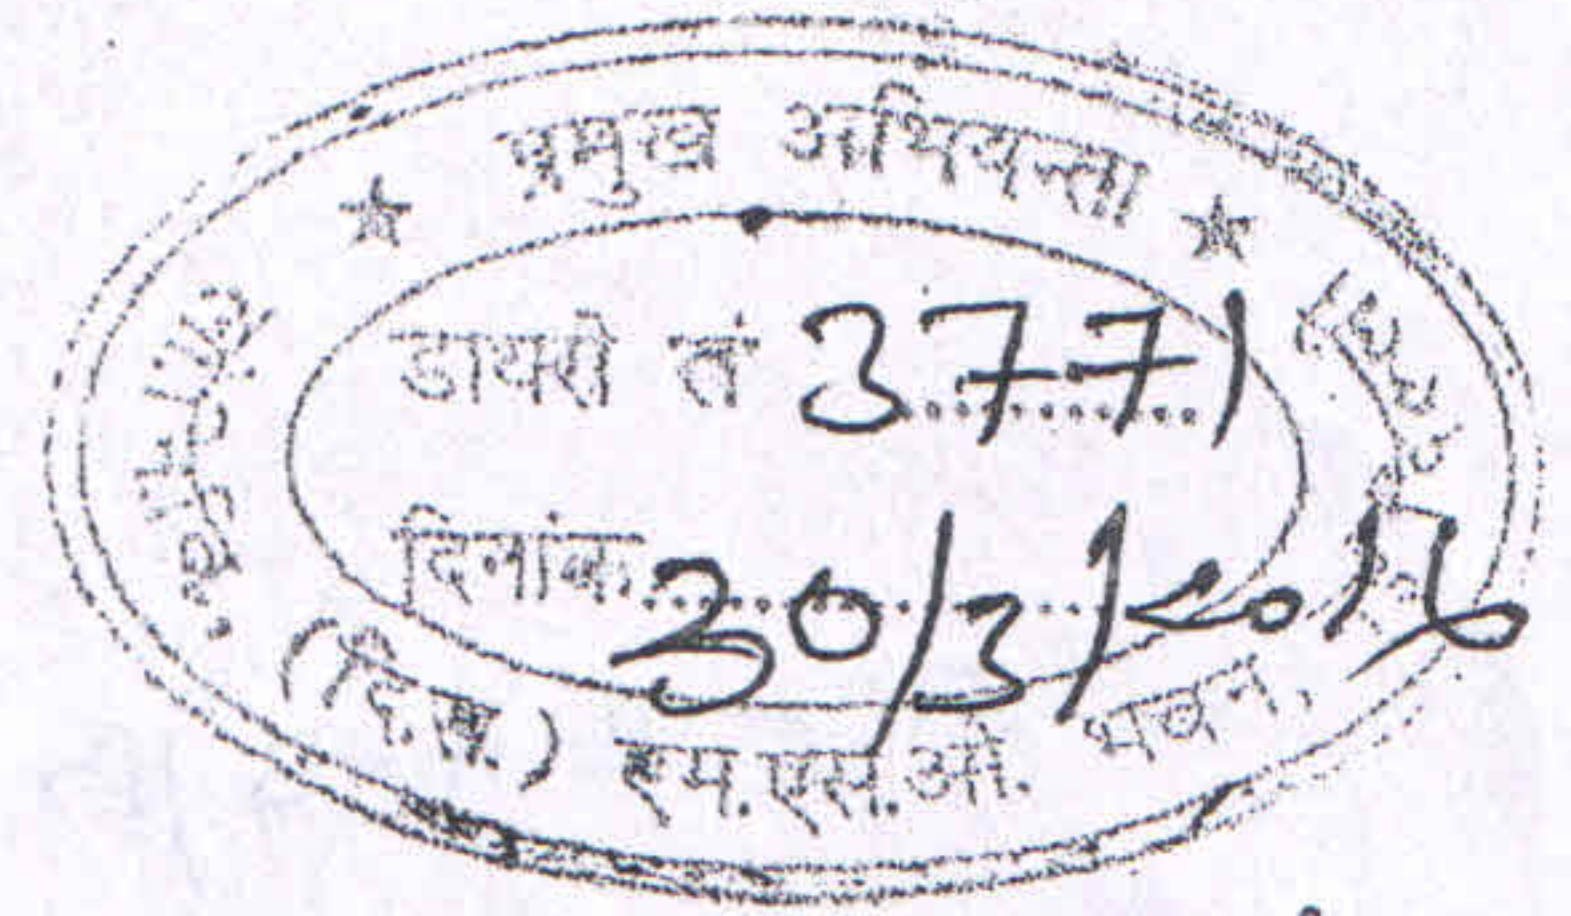 प्रमुख अभियन्ता
डायरी सं 3771
दिनांक 30/3/2016
(दि.क्षे.) एम.एस.ओ. भवन,